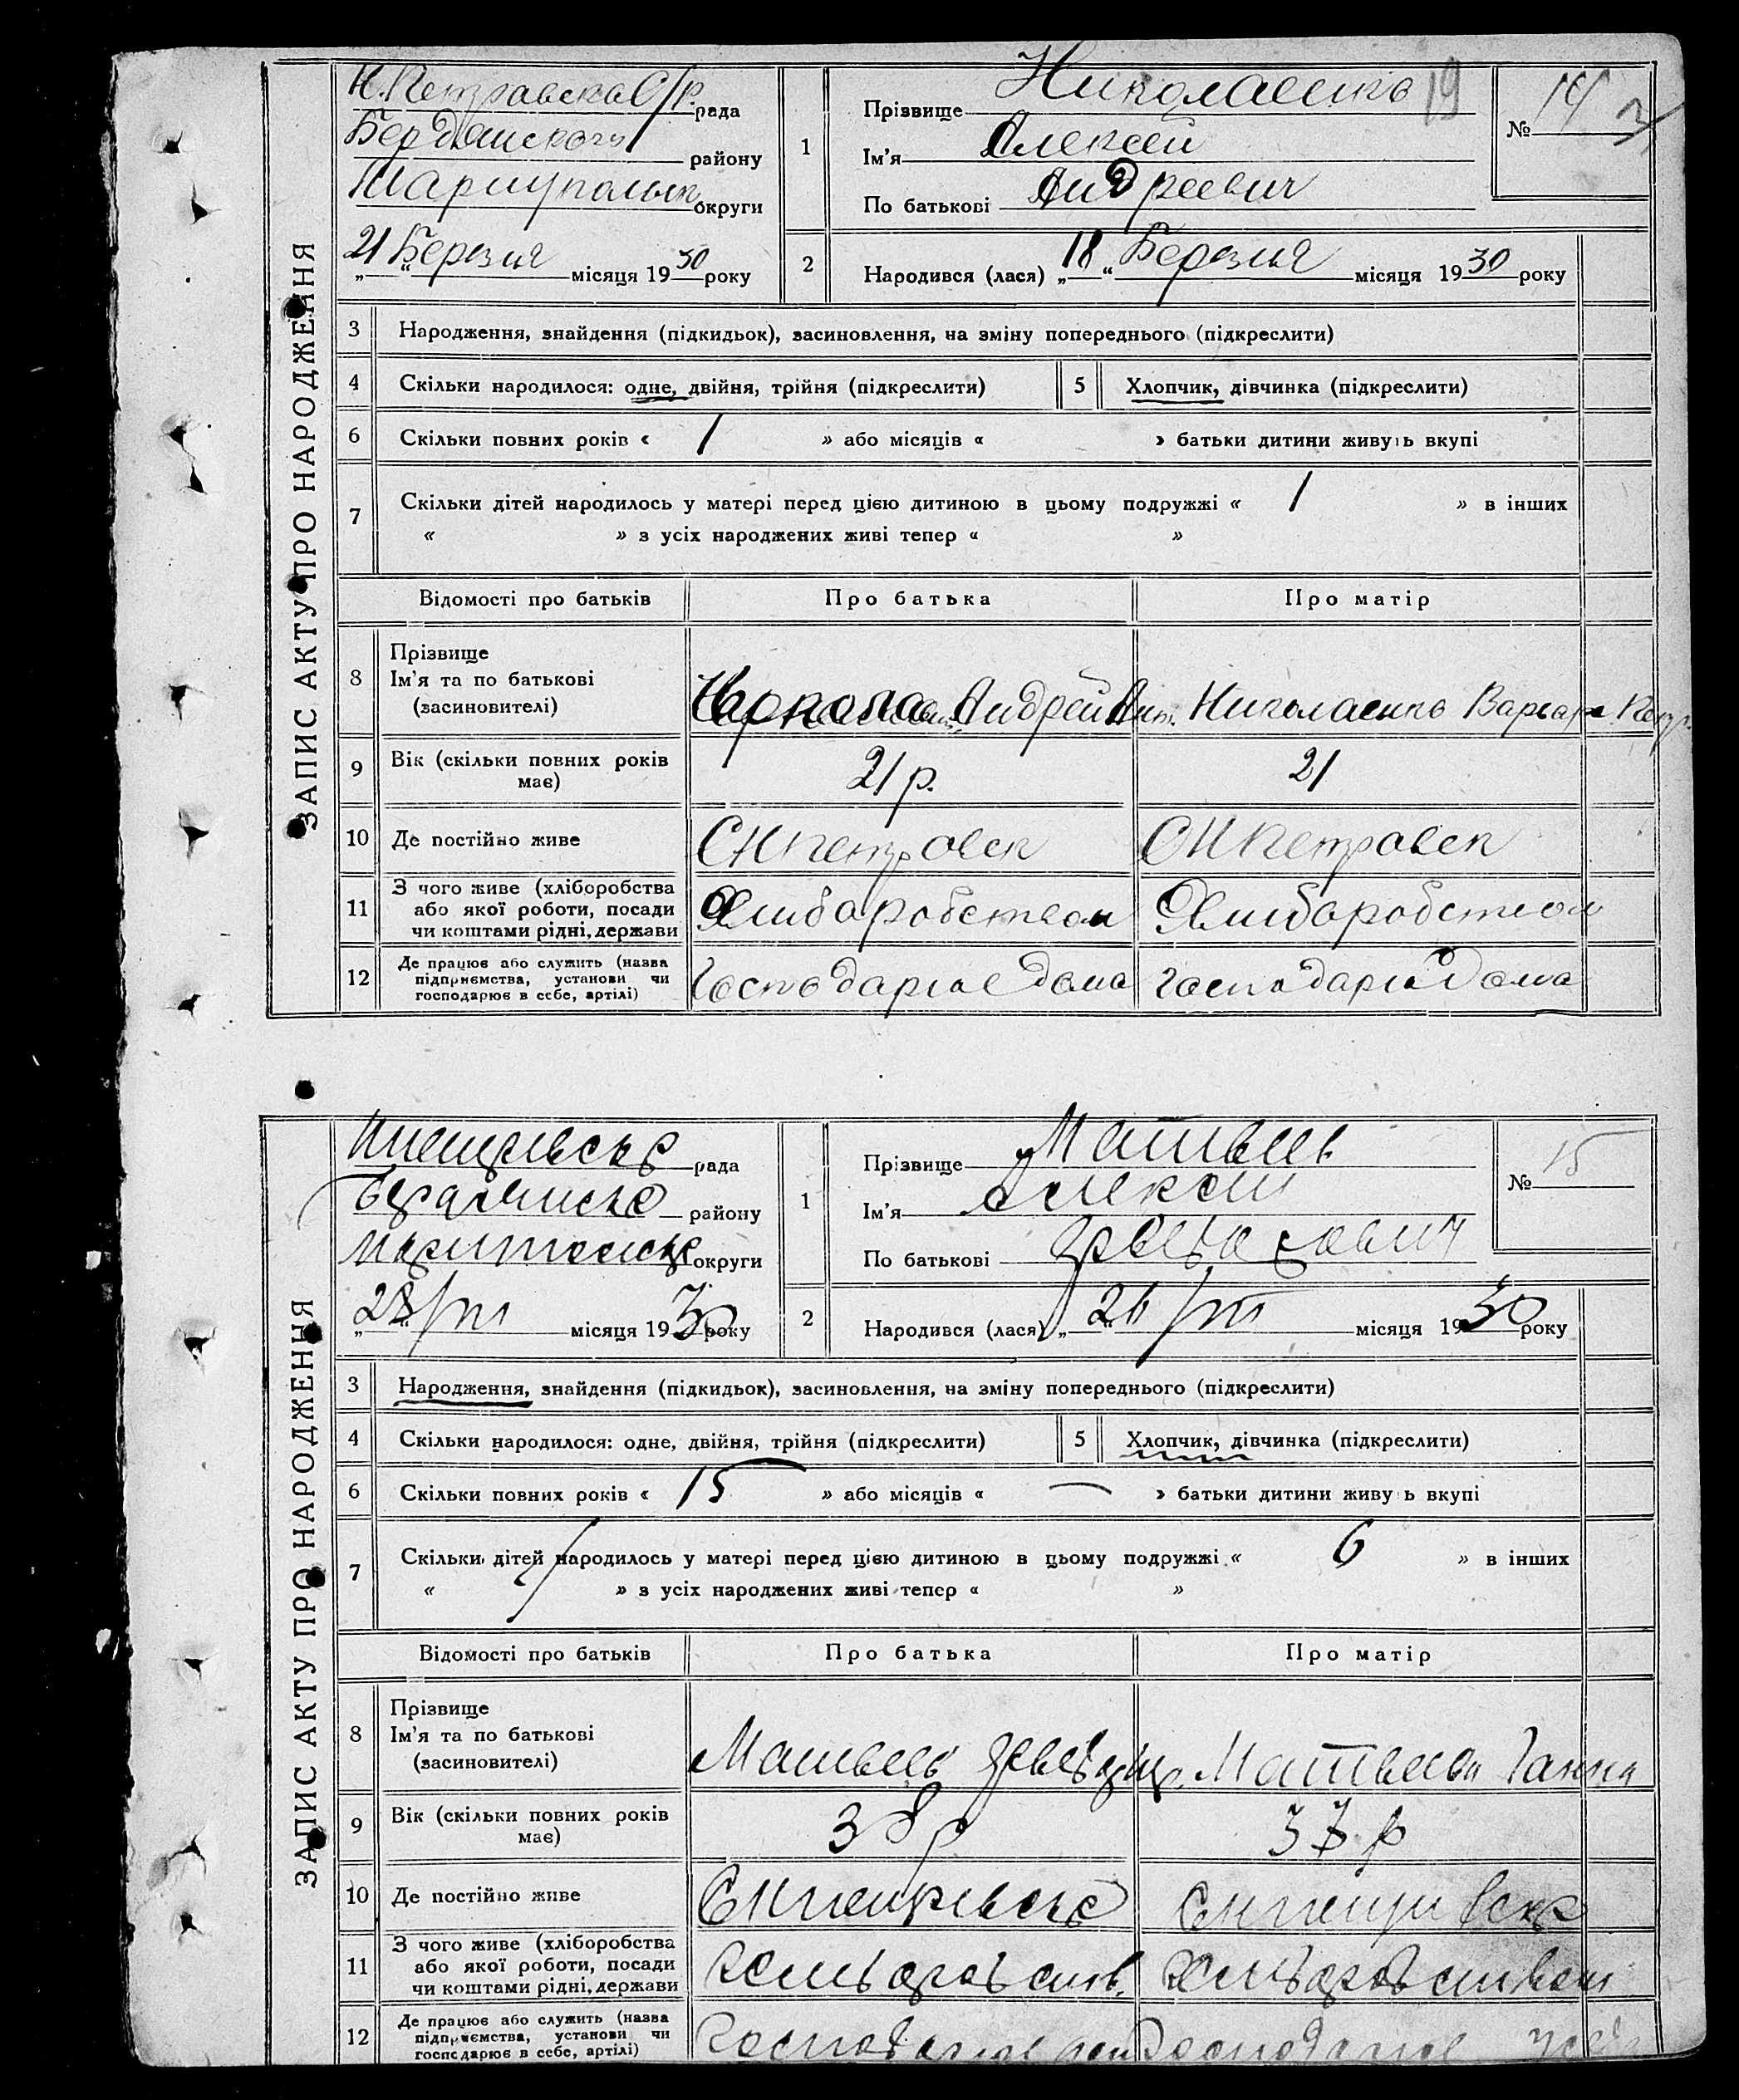 ЗАПИС АКТУ ПРО НАРОДЖЕННЯ
Н. Петравска С/р. рада
Бердянского району
Мариупольск округи
„21“ Березня місяця 1930 року
1
Прізвище Николаенко
Ім'я Алексей
По батькові Андреевич
19
№ 14
2
Народився (лася) „18“ Березня місяця 1930 року
3 Народження, знайдення (підкидьок), засиновлення, на зміну попереднього (підкреслити)
4 Скільки народилося: одне, двійня, трійня (підкреслити)
5 Хлопчик, дівчинка (підкреслити)
6 Скільки повних років « 1 » або місяців « » батьки дитини живуть вкупі
7 Скільки дітей народилось у матері перед цією дитиною в цьому подружжі « 1 » в інших
« » з усіх народжених живі тепер « »
Відомості про батьків Про батька Про матір
8 Прізвище
Ім'я та по батькові
(засиновителі)
Андрей Ант. Николаенко Варвара Петр.
9 Вік (скільки повних років
має)
21 р. 21
10 Де постійно живе С Н Петровск С Н Петровск
11 З чого живе (хліборобства
або якої роботи, посади
чи коштами рідні, держави
Хлиборобством Хлиборобством
12 Де працює або служить (назва
підприємства, установи чи
господарює в себе, артілі)
Господарює дома господарює дома
ЗАПИС АКТУ ПРО НАРОДЖЕННЯ
рада
району
округи
„28“/III місяця 1930 року
1
Прізвище Матвеев
Ім'я Алексей
По батькові
№ 15
2
Народився (лася) „26/III місяця 1930 року
3 Народження, знайдення (підкидьок), засиновлення, на зміну попереднього (підкреслити)
4 Скільки народилося: одне, двійня, трійня (підкреслити)
5 Хлопчик, дівчинка (підкреслити)
6 Скільки повних років « 15 » або місяців « — » батьки дитини живуть вкупі
7 Скільки дітей народилось у матері перед цією дитиною в цьому подружжі « 6 » в інших
« » з усіх народжених живі тепер « »
Відомості про батьків Про батька Про матір
8 Прізвище
Ім'я та по батькові
(засиновителі)
Матвеев Матвеева Ганна
9 Вік (скільки повних років
має)
38 р 37 р
10 Де постійно живе
11 З чого живе (хліборобства
або якої роботи, посади
чи коштами рідні, держави
12 Де працює або служить (назва
підприємства, установи чи
господарює в себе, артілі)
Господарює Господарює